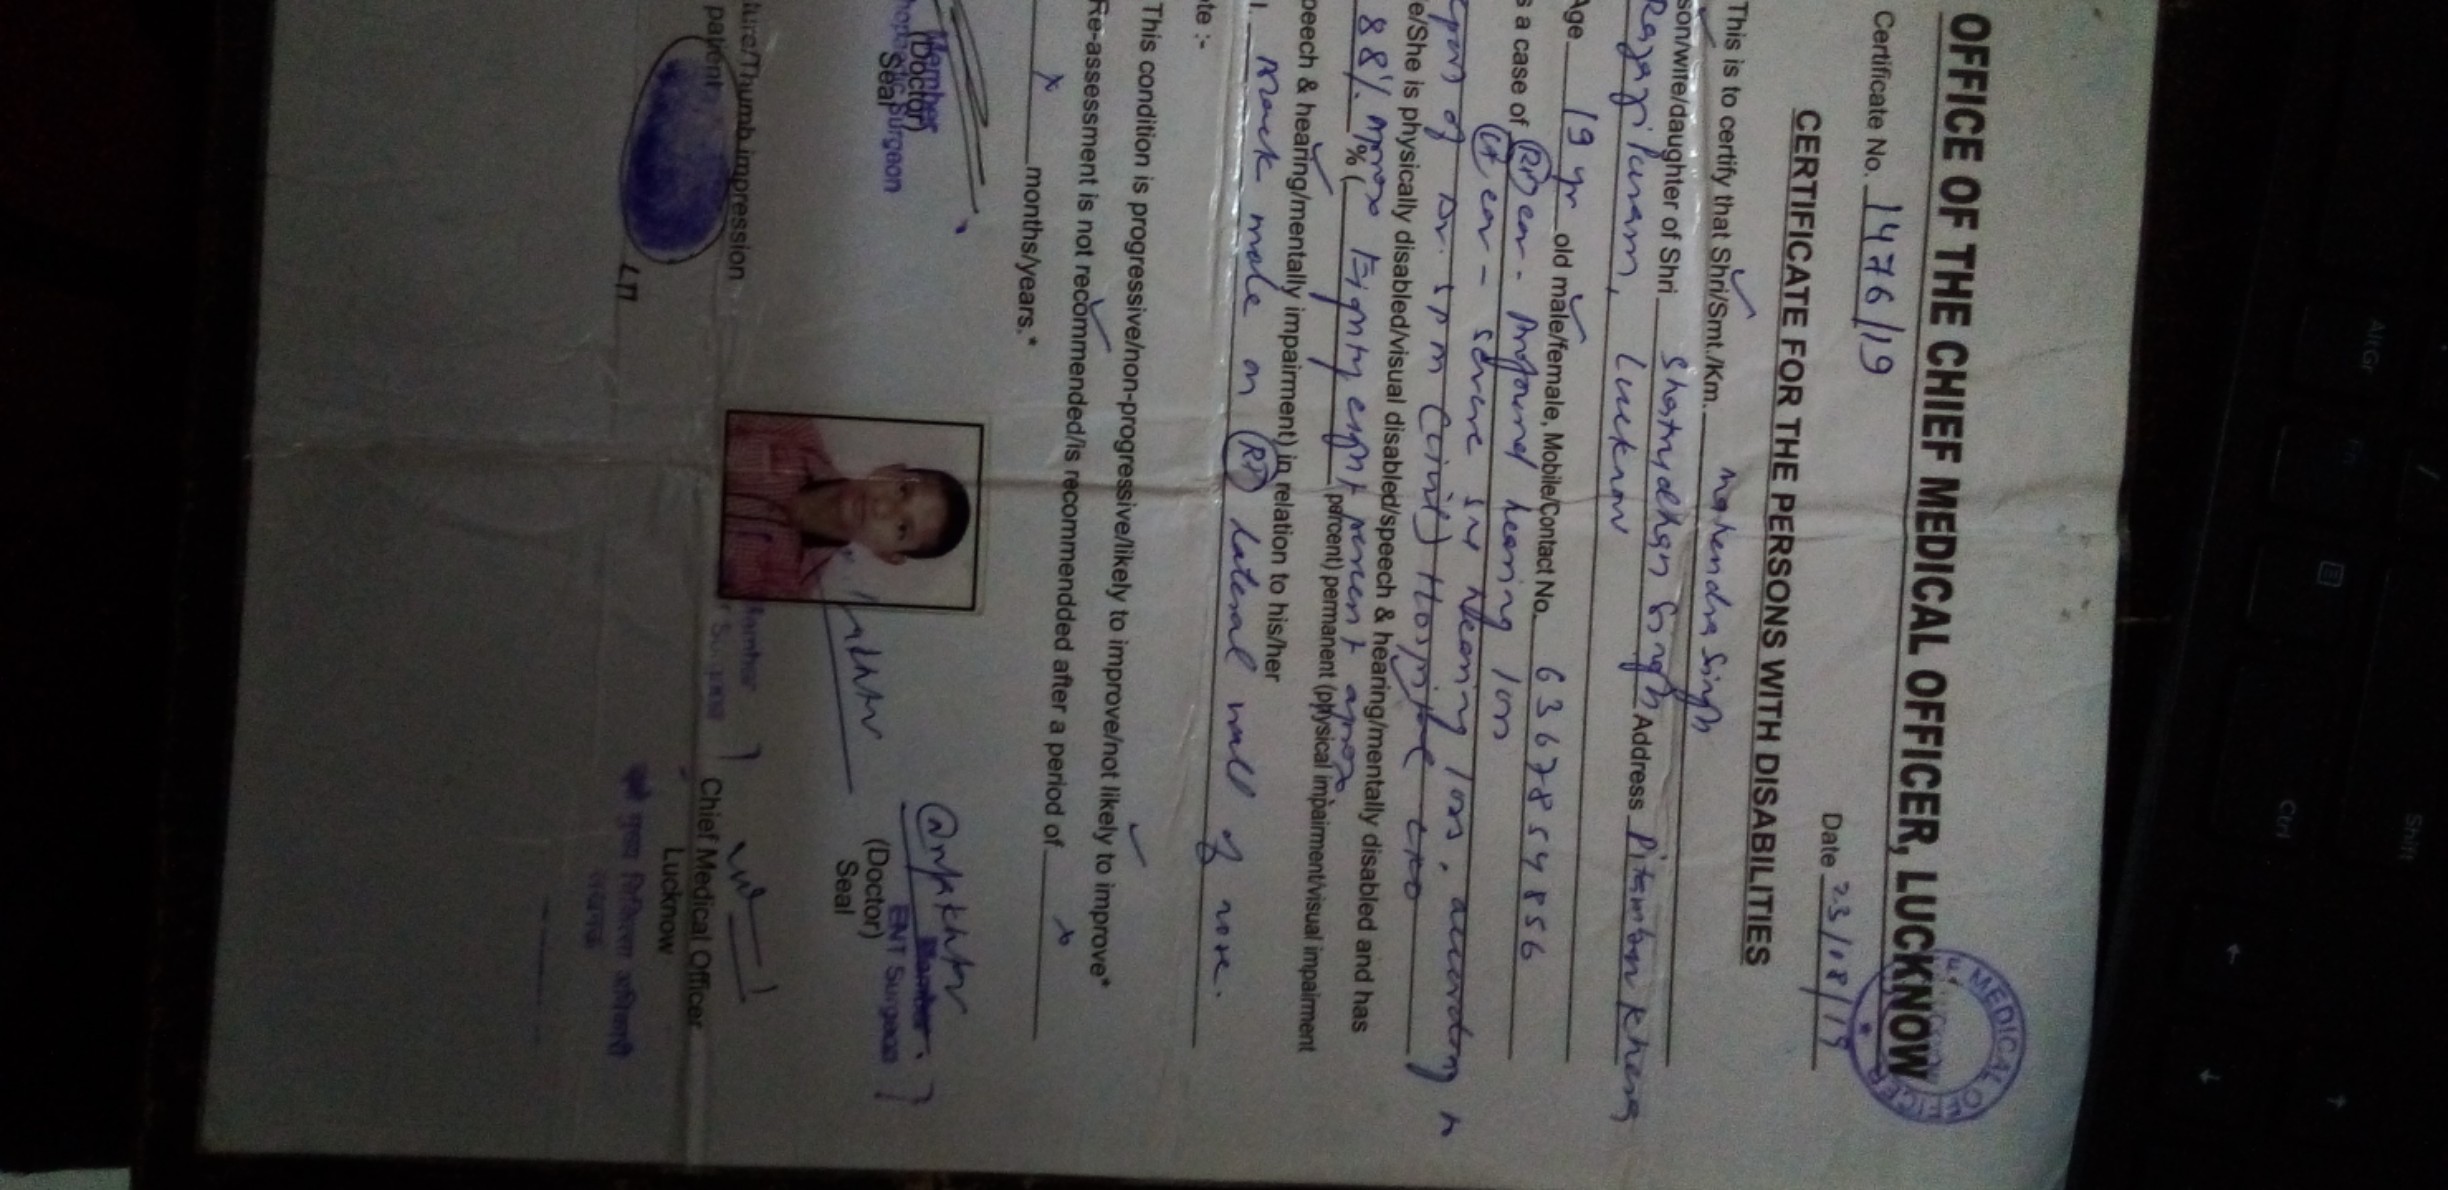 OFFICE OF THE CHIEF MEDICAL OFFICER, LUCKNOW
MEDICAL OFFICER
Certificate No. 1476/19
Date 23/08/19
CERTIFICATE FOR THE PERSONS WITH DISABILITIES
This is to certify that Shri/Smt./Km. Mahendra Singh
son/wife/daughter of Shri Shatrydhan Singh Address Pitambar Khera
Rajajipuram, Lucknow
Age 19 yr old male/female, Mobile/Contact No. 6367854856
s a case of Rt ear - Profound hearing loss
Lt ear - severe SN Hearing loss, according to
of Dr. SPM (Civil) Hospital
e/She is physically disabled/visual disabled/speech & hearing/mentally disabled and has
88% approx % ( Eighty eight percent approx percent) permanent (physical impairment/visual impairment
peech & hearing/mentally impairment) in relation to his/her
1. A black mole on Rt lateral wall of nose.
te :-
This condition is progressive/non-progressive/likely to improve/not likely to improve*
Re-assessment is not recommended/is recommended after a period of x
x months/years.*
Member
(Doctor)
Surgeon
Seal
(Doctor)
ENT Surgeon
Seal
ture/Thumb impression
patient
LTI
Member
Chief Medical Officer
Lucknow
AltGr
Fn
Ctrl
Shift
/